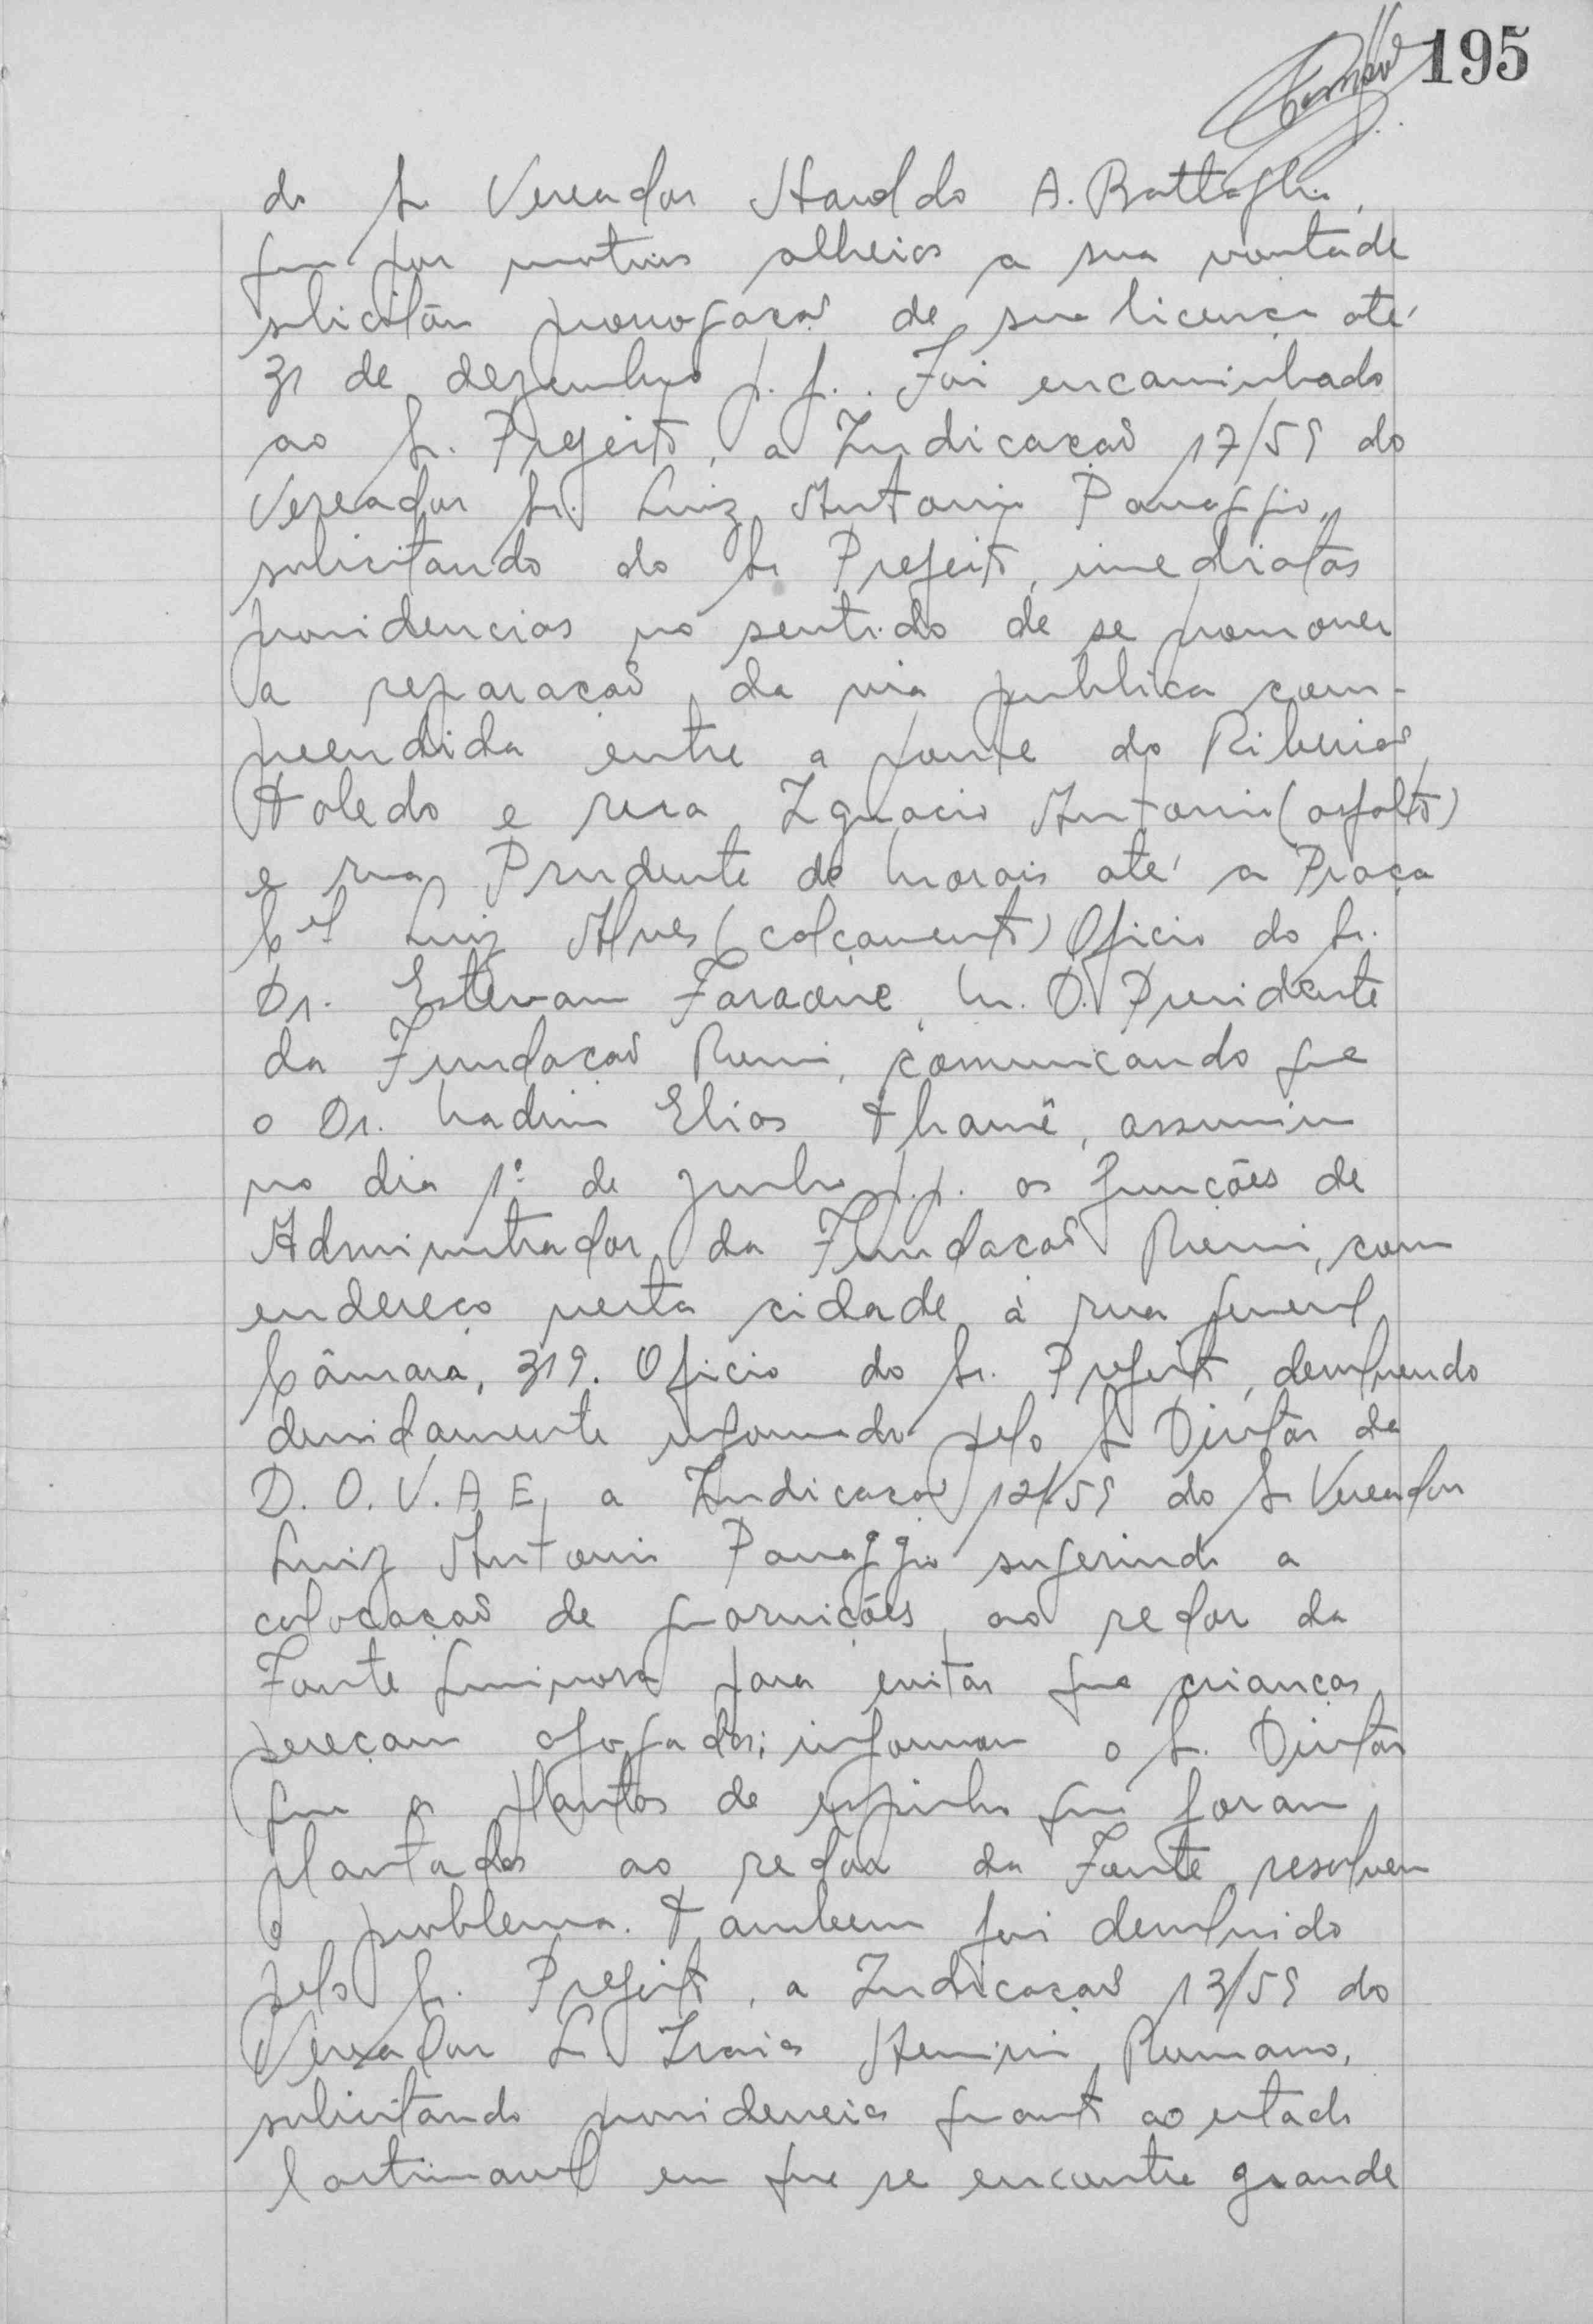 195
do Sr Vereador Haroldo A. Battaglia,
que por motivos alheios a sua vontade
solicitou prorrogação de sua licença até
31 de dezembro p. f.. Foi encaminhado
ao Sr. Prefeito, a Indicação 17/59 do
Vereador Sr. Luiz Antonio Panaggio,
solicitando do Sr Prefeito, imediatas
providencias no sentido de se promover
a reparação da via publica com-
preendida entre a ponte do Ribeirão
Toledo e rua Ignacio Antonio (asfalto)
e rua Prudente de Morais até a Praça
Cel Luiz Alves (calçamento) Oficio do Sr.
Dr. Estevam Faraone, M. D. Presidente
da Fundação Romi, comunicando que
o Dr. Nadim Elias Thamê, assumiu
no dia 1º de junho p.p. as funções de
Administrador da Fundação Romi, com
endereço nesta cidade à rua General
Câmara, 319. Oficio do Sr. Prefeito, devolvendo
devidamente informado pelo Sr Diretor da
D. O. V. A E, a Indicação 12/59 do Sr Vereador
Luiz Antonio Panaggio sugerindo a
colocação de guarnições, ao redor da
Fonte Luminosa para evitar que crianças
pereçam afogadas; informou o Sr. Diretor
que as plantas de espinho que foram
plantadas ao redor da Fonte resolvem
o problema. Tambem foi devolvido
pelo Sr. Prefeito, a Indicação 13/59 do
Vereador Sr Isaias Hermini Romano,
solicitando providencia quanto ao estado
lastimavel em que se encontra grande